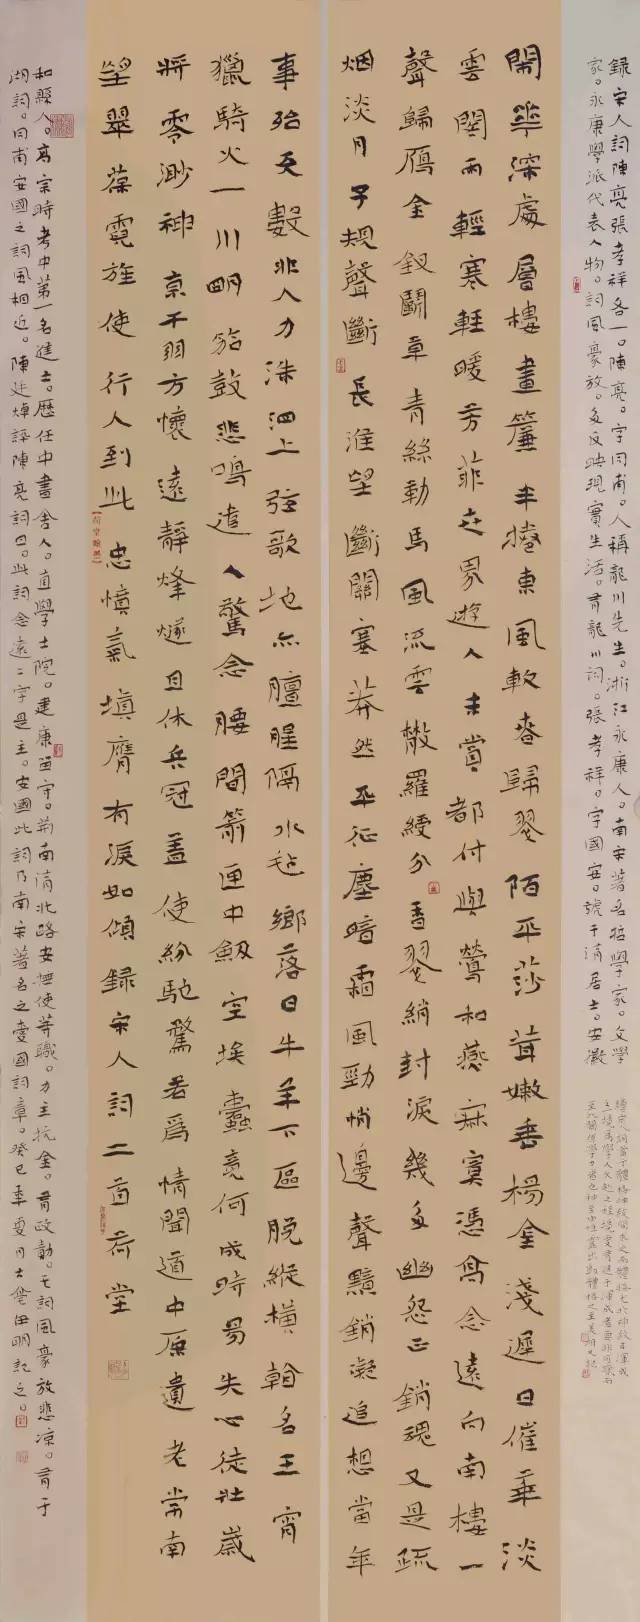 録宋人詞陳亮張孝祥各一。陳亮。字同甫。人稱龍川先生。浙江永康人。南宋著名哲學家。文學
家。永康學派代表人物。詞風豪放。多反映現實生活。有龍川詞。張孝祥。字國安。號于湖居士。安徽
閙華深處層樓畫簾半捲東風軟春歸翠陌平莎茸嫩垂楊金淺遲日催華淡
雲閣雨輕寒輕暖芳菲世界遊人未賞都付與鶯和燕寂寞憑高念遠向南樓一
聲歸鴈金釵鬭草青絲勒馬風流雲散羅綬分香翠綃封淚幾多幽怨正銷魂又是疏
烟淡月子規聲斷長淮望斷關塞莽然平征塵暗霜風勁悄邊聲黯銷凝追想當年
事殆天數非人力洙泗上弦歌地亦膻腥隔水氈鄉落日牛羊下區脫縱橫看名王宵
獵騎火一川明笳鼓悲鳴遣人驚念腰間箭匣中劒空埃蠹竟何成時易失心徒壯歲
將零渺神京干羽方懷遠靜烽燧且休兵冠蓋使紛馳騖若爲情聞道中原遺老常南
望翠葆霓旌使行人到此忠憤氣填膺有淚如傾録宋人詞二首荷堂
和縣人。高宗時考中第一名進士。歷任中書舍人。直學士院。建康留守。荊南湖北路安撫使等職。力主抗金。有政勣。其詞風豪放悲凉。有于
湖詞。同甫安國之詞風相近。陳廷焯評陳亮詞曰。此詞念遠二字是主。安國此詞乃南宋著名之愛國詞章。癸巳季夏月明記之。